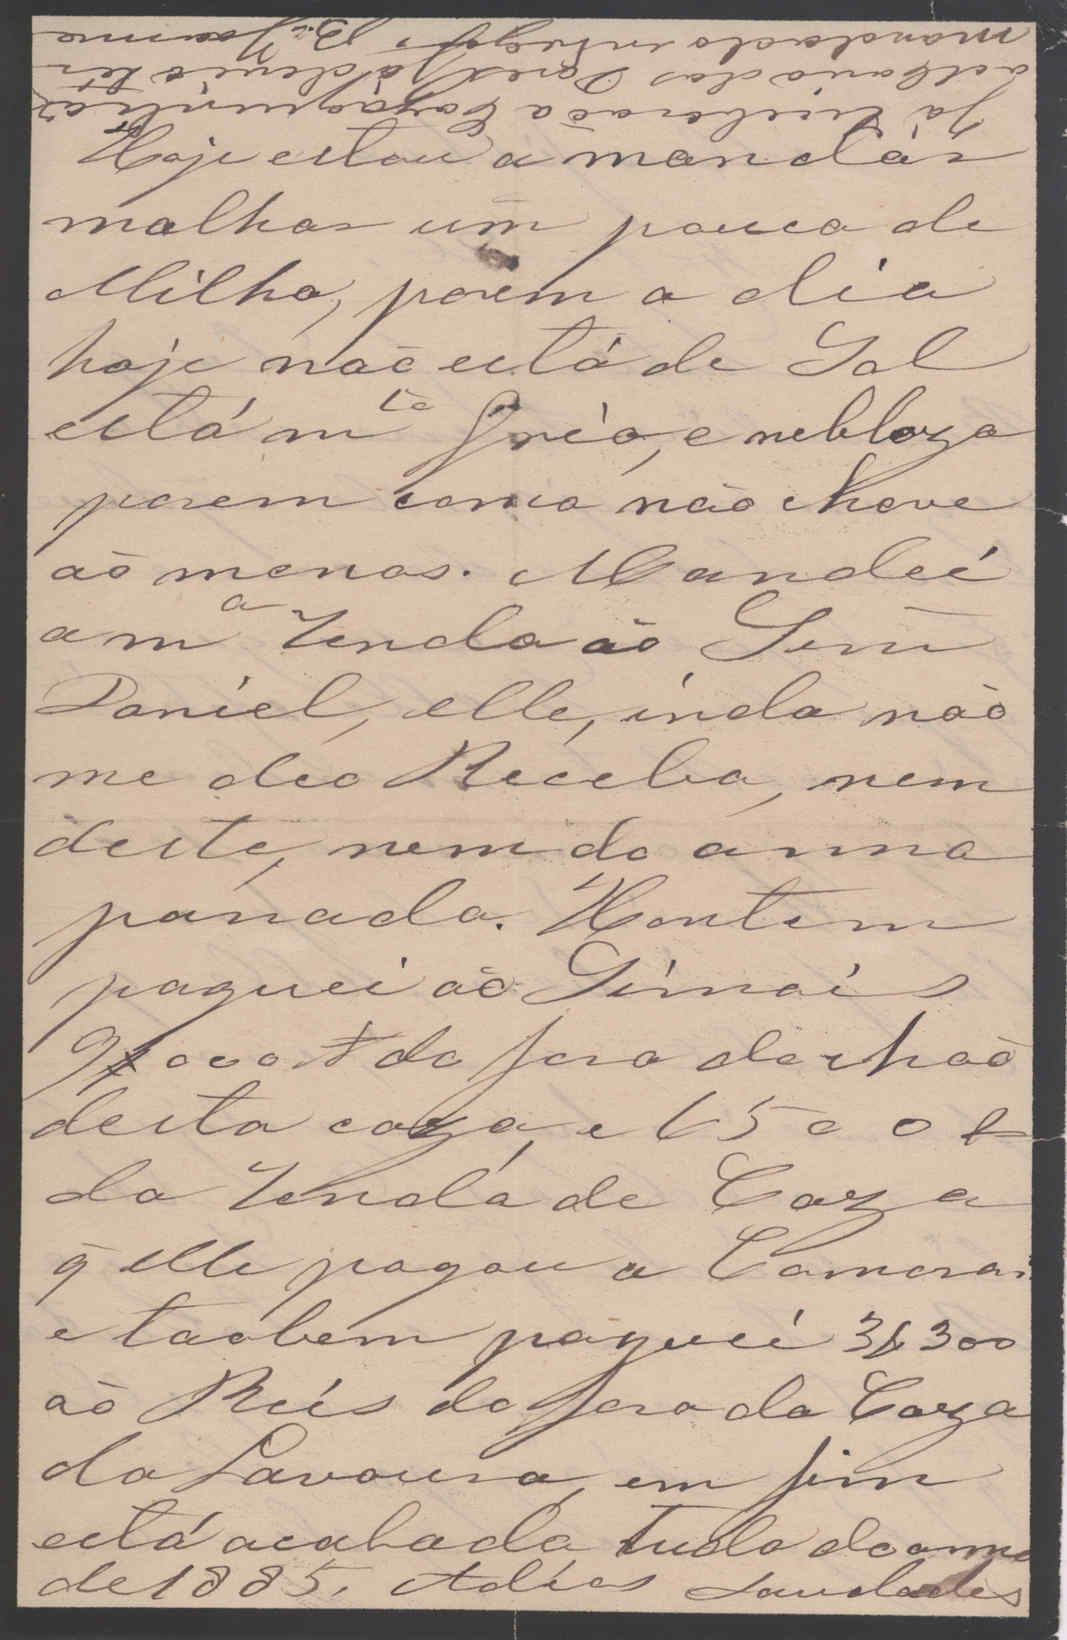 Hoje estou a mandár
malhar um pouco de
Milho, porem o dia
hoje não está de Sol
está m.to frio, e nebloza
porem como não chove
ao menos. Mandei
a m.a Renda ao Snr
Daniel, elle, inda não
me deo Recebo, nem
deste, nem do anno
panado. Hontem
paguei ao Simais
9$000 do foro do chão
desta caza, e 6500
da Renda de Caza
q̃ elle pagou a Camera
e taobem paguei 3$300
ao Reis do foro da Caza
da Lavoura, em fim
está acabado tudo do anno
de 1885. Adios Saudades
Já
mandado entregar